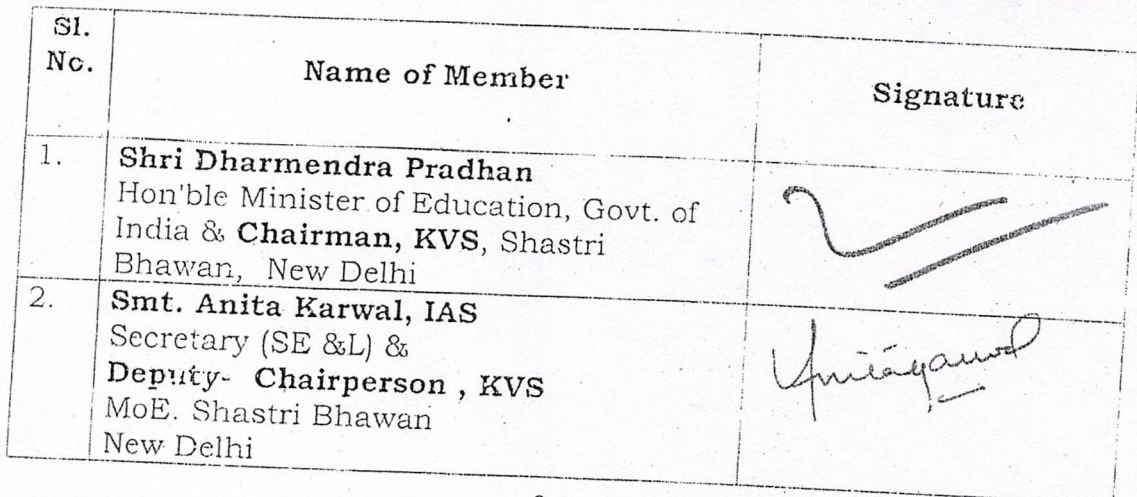 Sl.
No.
Name of Member
Signature
1.
Shri Dharmendra Pradhan
Hon'ble Minister of Education, Govt. of
India & Chairman, KVS, Shastri
Bhawan, New Delhi
2.
Smt. Anita Karwal, IAS
Secretary (SE &L) &
Deputy- Chairperson , KVS
MoE. Shastri Bhawan
New Delhi